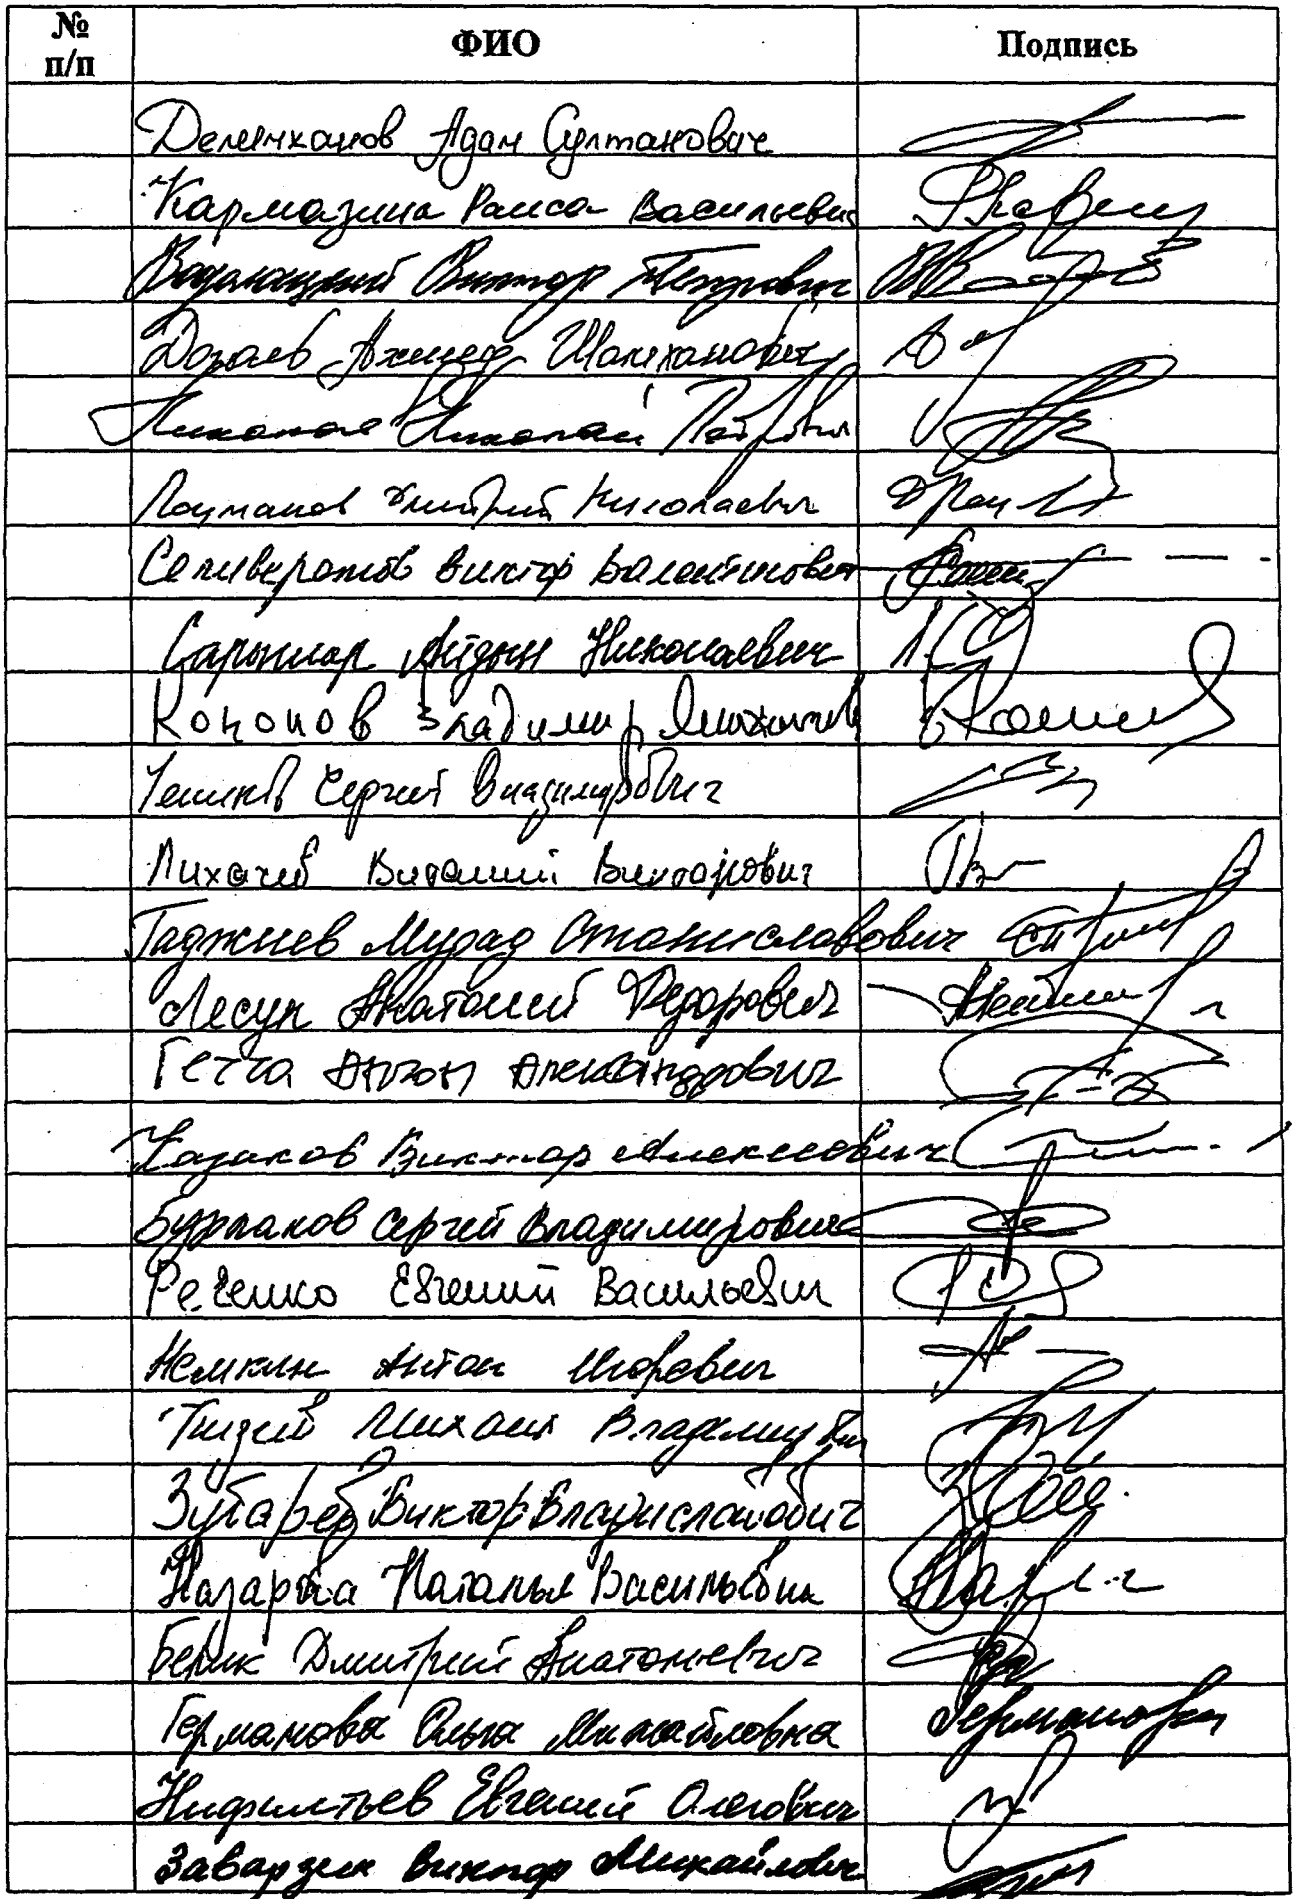 № п/п ФИО Подпись
Делимханов Адам Султанович
Кармазина Раиса Васильевна
Водолацкий Виктор Петрович
Догаев Ахмед Шамханович
Николай Петрович
Дмитрий Николаевич
Селиверстов Виктор Валентинович
Сарыглар Айдын Николаевич
Кононов Владимир Михайлович
Тенишев Сергей Владимирович
Лихачев Виталий Викторович
Гаджиев Мурад Станиславович
Лесун Анатолий Федорович
Гетта Антон Александрович
Казаков Виктор Алексеевич
Бурлаков Сергей Владимирович
Ревенко Евгений Васильевич
Немкин Антон Игоревич
Михаил Владимирович
Зубарев Виктор Владиславович
Назарова Наталья Васильевна
Берик Дмитрий Анатольевич
Германова Ольга Михайловна Германова
Нифантьев Евгений Олегович
Заварзин Виктор Михайлович